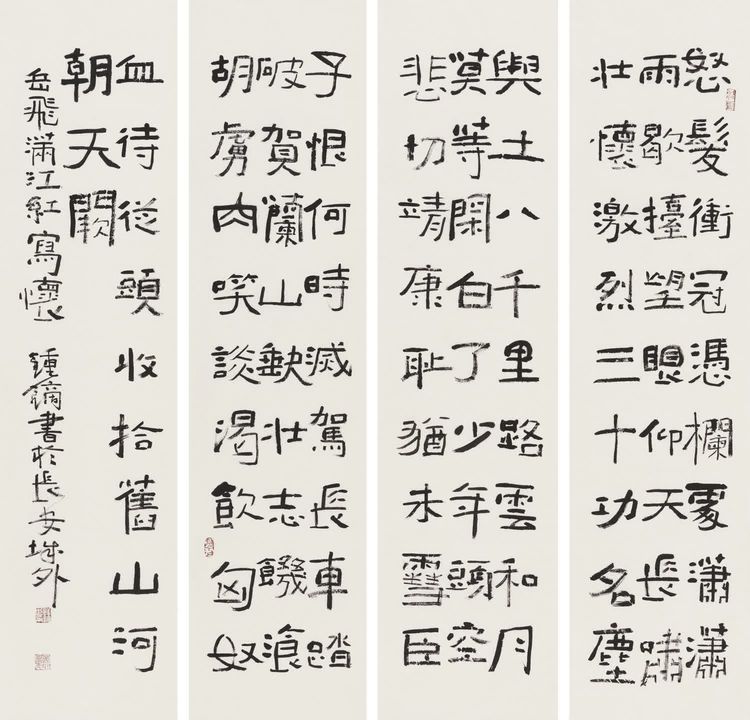 怒髮衝冠憑欄處瀟瀟
雨歇擡望眼仰天長嘯
壯懷激烈三十功名塵
與土八千里路雲和月
莫等閑白了少年頭空
悲切靖康耻猶未雪臣
子恨何時滅駕長車踏
破賀蘭山缺壯志饑湌
胡虜肉笑談渴飲匈奴
血待從頭收拾舊山河
朝天闕
岳飛滿江紅寫懷 鍾鏑書於長安城外